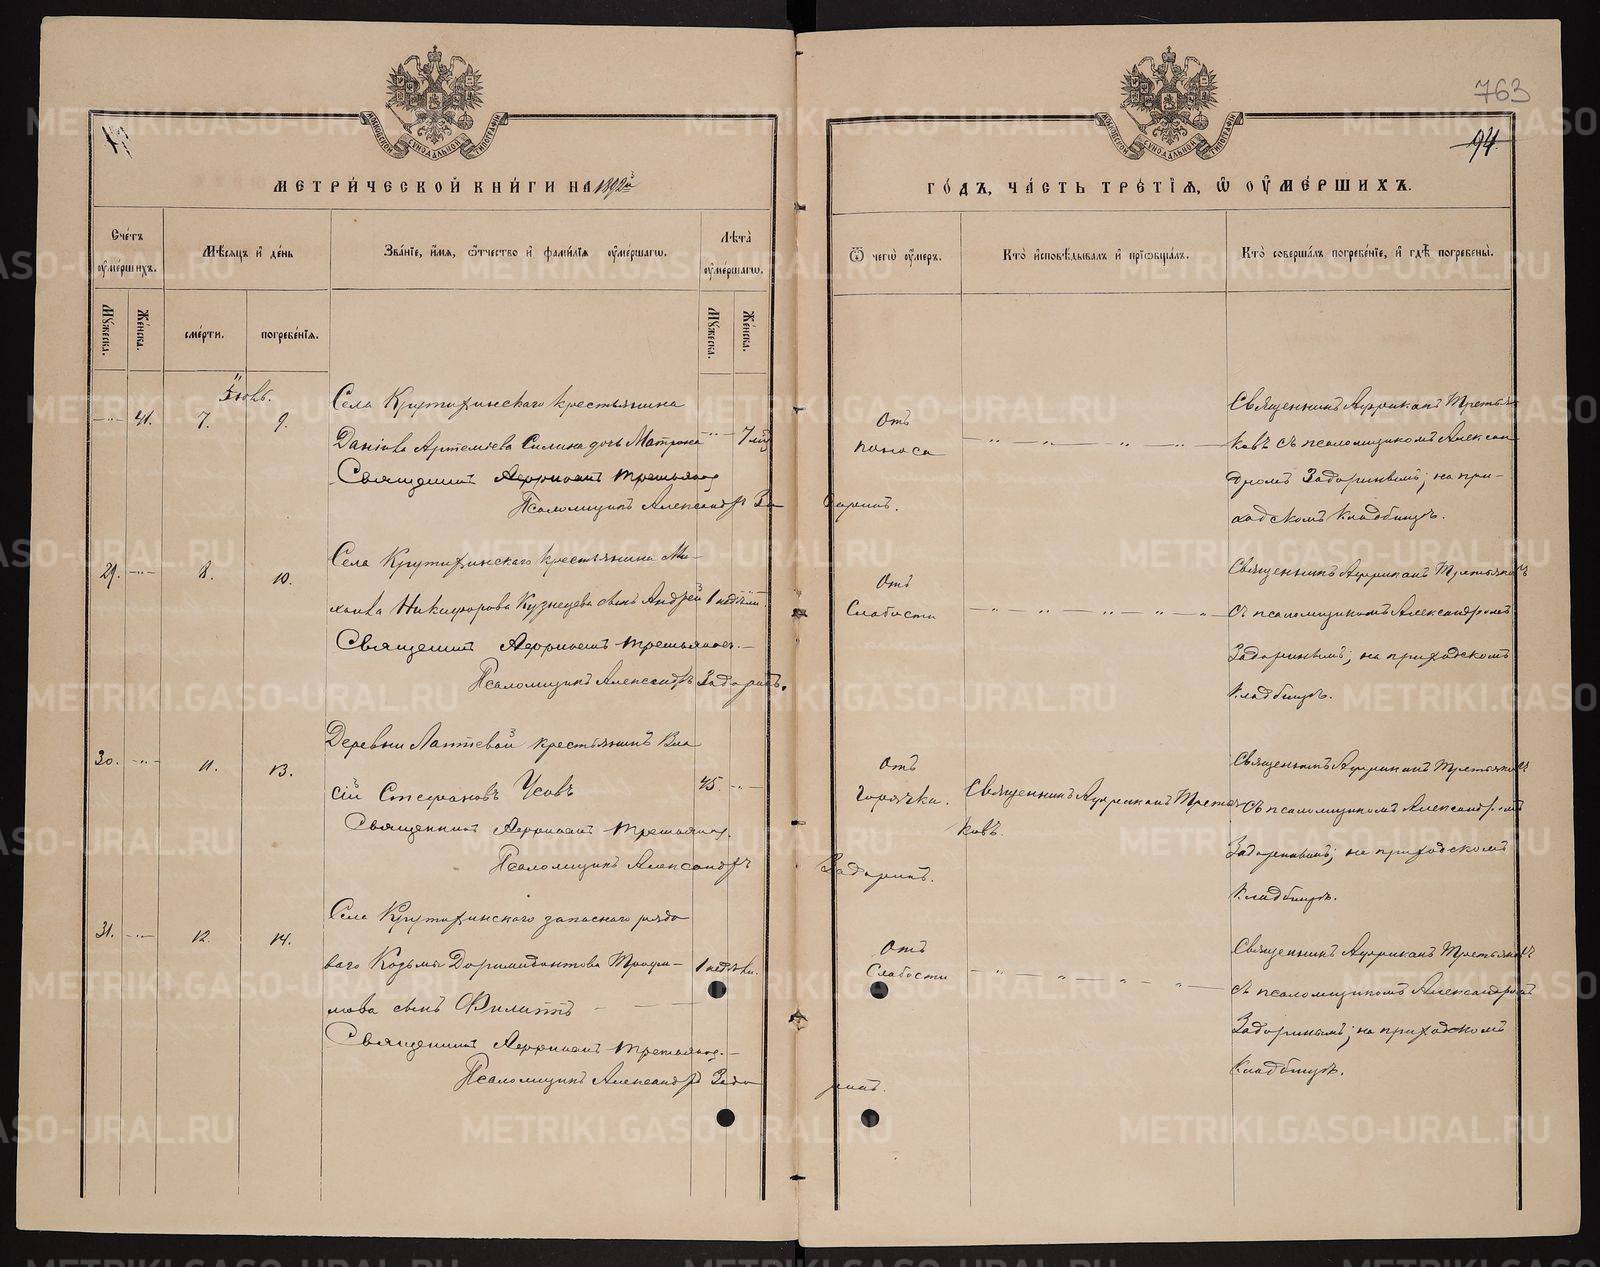 763
94.
МЕТРИ́ЧЕСКОЙ КНИ́ГИ НА 1892й
ГО́ДЪ, ЧА́СТЬ ТРЕ́ТІѦ, Ѿ ОУ҆МЕ́РШИХЪ.
Сче́тъ оу҆ме́ршихъ.
Мꙋ́жеска.
Же́нска.
Мѣ́сяцъ и҆ де́нь
сме́рти.
погребе́нїѧ.
Зва́нїе, и҆́мѧ, ѻ҆́тчество и҆ фами́лїѧ оу҆ме́ршагѡ.
Лѣ́та оу҆ме́ршагѡ.
Мꙋ́жеска.
Же́нска.
Ѿ чегѡ̀ оу҆́меръ.
Кто̀ и҆сповѣ́дывалъ и҆ прїѡбща́лъ.
Кто̀ соверша́лъ погребе́нїе, и҆ гдѣ̀ погребены̀.
Іюнь.
41. 7. 9.
Села Крутихинскаго крестьянина
Даніила Артемьева Силина дочь Матрона 7 мц
Священникъ Африканъ Третьяковъ
Псаломщикъ Александръ Задоринъ.
Отъ
поноса
Священникъ Африканъ Третья-
ковъ съ псаломщикомъ Алексан
дромъ Задоринымъ; на при-
ходскомъ кладбищѣ.
29. 8. 10.
Села Крутихинскаго крестьянина Ми-
хаила Никифорова Кузнецова сынъ Андрей 1 недѣли.
Священникъ Африканъ Третьяковъ.
Псаломщикъ Александръ Задоринъ.
Отъ
Слабости
Священникъ Африканъ Третьяковъ
съ псаломщикомъ Александромъ
Задоринымъ; на приходскомъ
кладбищѣ.
30. 11. 13.
Деревни Лаптевой крестьянинъ Вла
сій Стефановъ Усовъ 45.
Священникъ Африканъ Третьяковъ.
Псаломщикъ Александръ Задоринъ.
Отъ
горячки.
Священникъ Африканъ Третья
ковъ.
Священникъ Африканъ Третьяковъ
съ псаломщикомъ Александромъ
Задоринымъ; на приходскомъ
кладбищѣ.
31. 12. 14.
Села Крутихинскаго запаснаго рядо
ваго Козьмы Доримедонтова
сынъ Филиппъ 1 недѣли.
Священникъ Африканъ Третьяковъ.
Псаломщикъ Александръ Задоринъ.
Отъ
Слабости
Священникъ Африканъ Третьяковъ
съ псаломщикомъ Александромъ
Задоринымъ; на приходскомъ
кладбищѣ.
METRIKI.GASO-URAL.RU